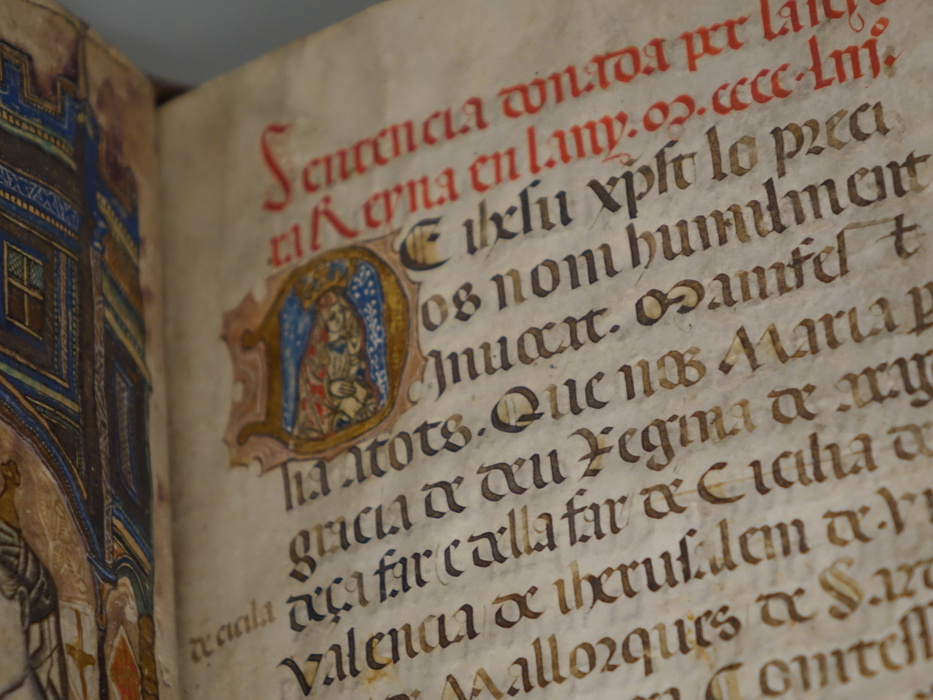 Sentencia donada per la sen̄yo
ra Reyna en lany .M.cccc.Liiijº.
DE ihesu xp̄st lo preci
os nom humilment
Inuocat. Manifest
lia atots. Que nos Maria p
gracia de deu Regina de arago
deça far e della far de Cicilia de
de cicila
valencia de iherusalem de
Mallorques de Sard
Comtess